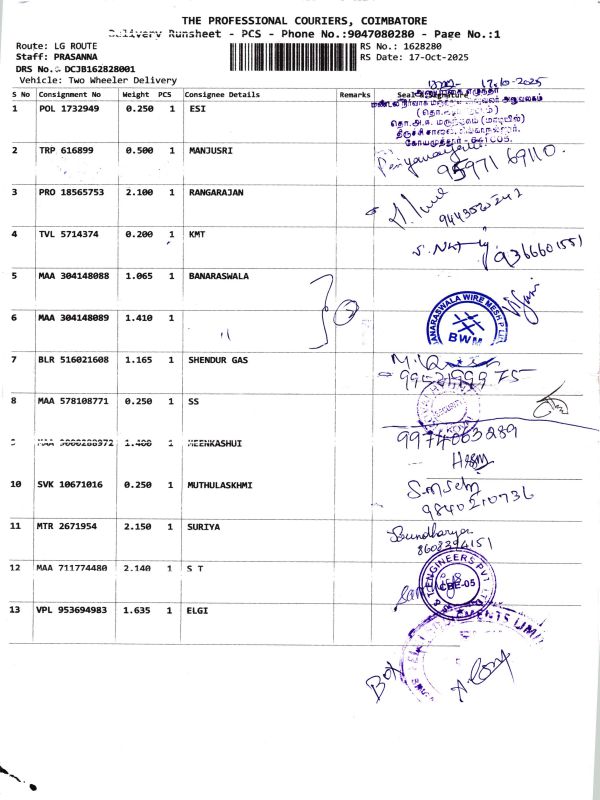 THE PROFESSIONAL COURIERS, COIMBATORE
Delivery Runsheet - PCS - Phone No.:9047080280 - Page No.:1
Route: LG ROUTE
Staff: PRASANNA
DRS No.: DCJB162828001
Vehicle: Two Wheeler Delivery
RS No.: 1628280
RS Date: 17-Oct-2025
17.10-2025
S No Consignment No Weight PCS Consignee Details Remarks Seal & Signature
1 POL 1732949 0.250 1 ESI
திருச்சி சாலை,
2 TRP 616899 0.500 1 MANJUSRI
95971 69110.
3 PRO 18565753 2.100 1 RANGARAJAN
4 TVL 5714374 0.200 1 KMT
9366601551
5 MAA 304148088 1.065 1 BANARASWALA
6 MAA 304148089 1.410 1
2
BANARASWALA WIRE MESH P LTD
BWM
7 BLR 516021608 1.165 1 SHENDUR GAS
8 MAA 578108771 0.250 1 SS
9974063289
9 1.400 1 MEENKASHUI
10 SVK 10671016 0.250 1 MUTHULASKHMI
9840210736
11 MTR 2671954 2.150 1 SURIYA
Soundharya
8608394151
12 MAA 711774480 2.140 1 S T
ENGINEERS PVT LTD
CBE-05
13 VPL 953694983 1.635 1 ELGI